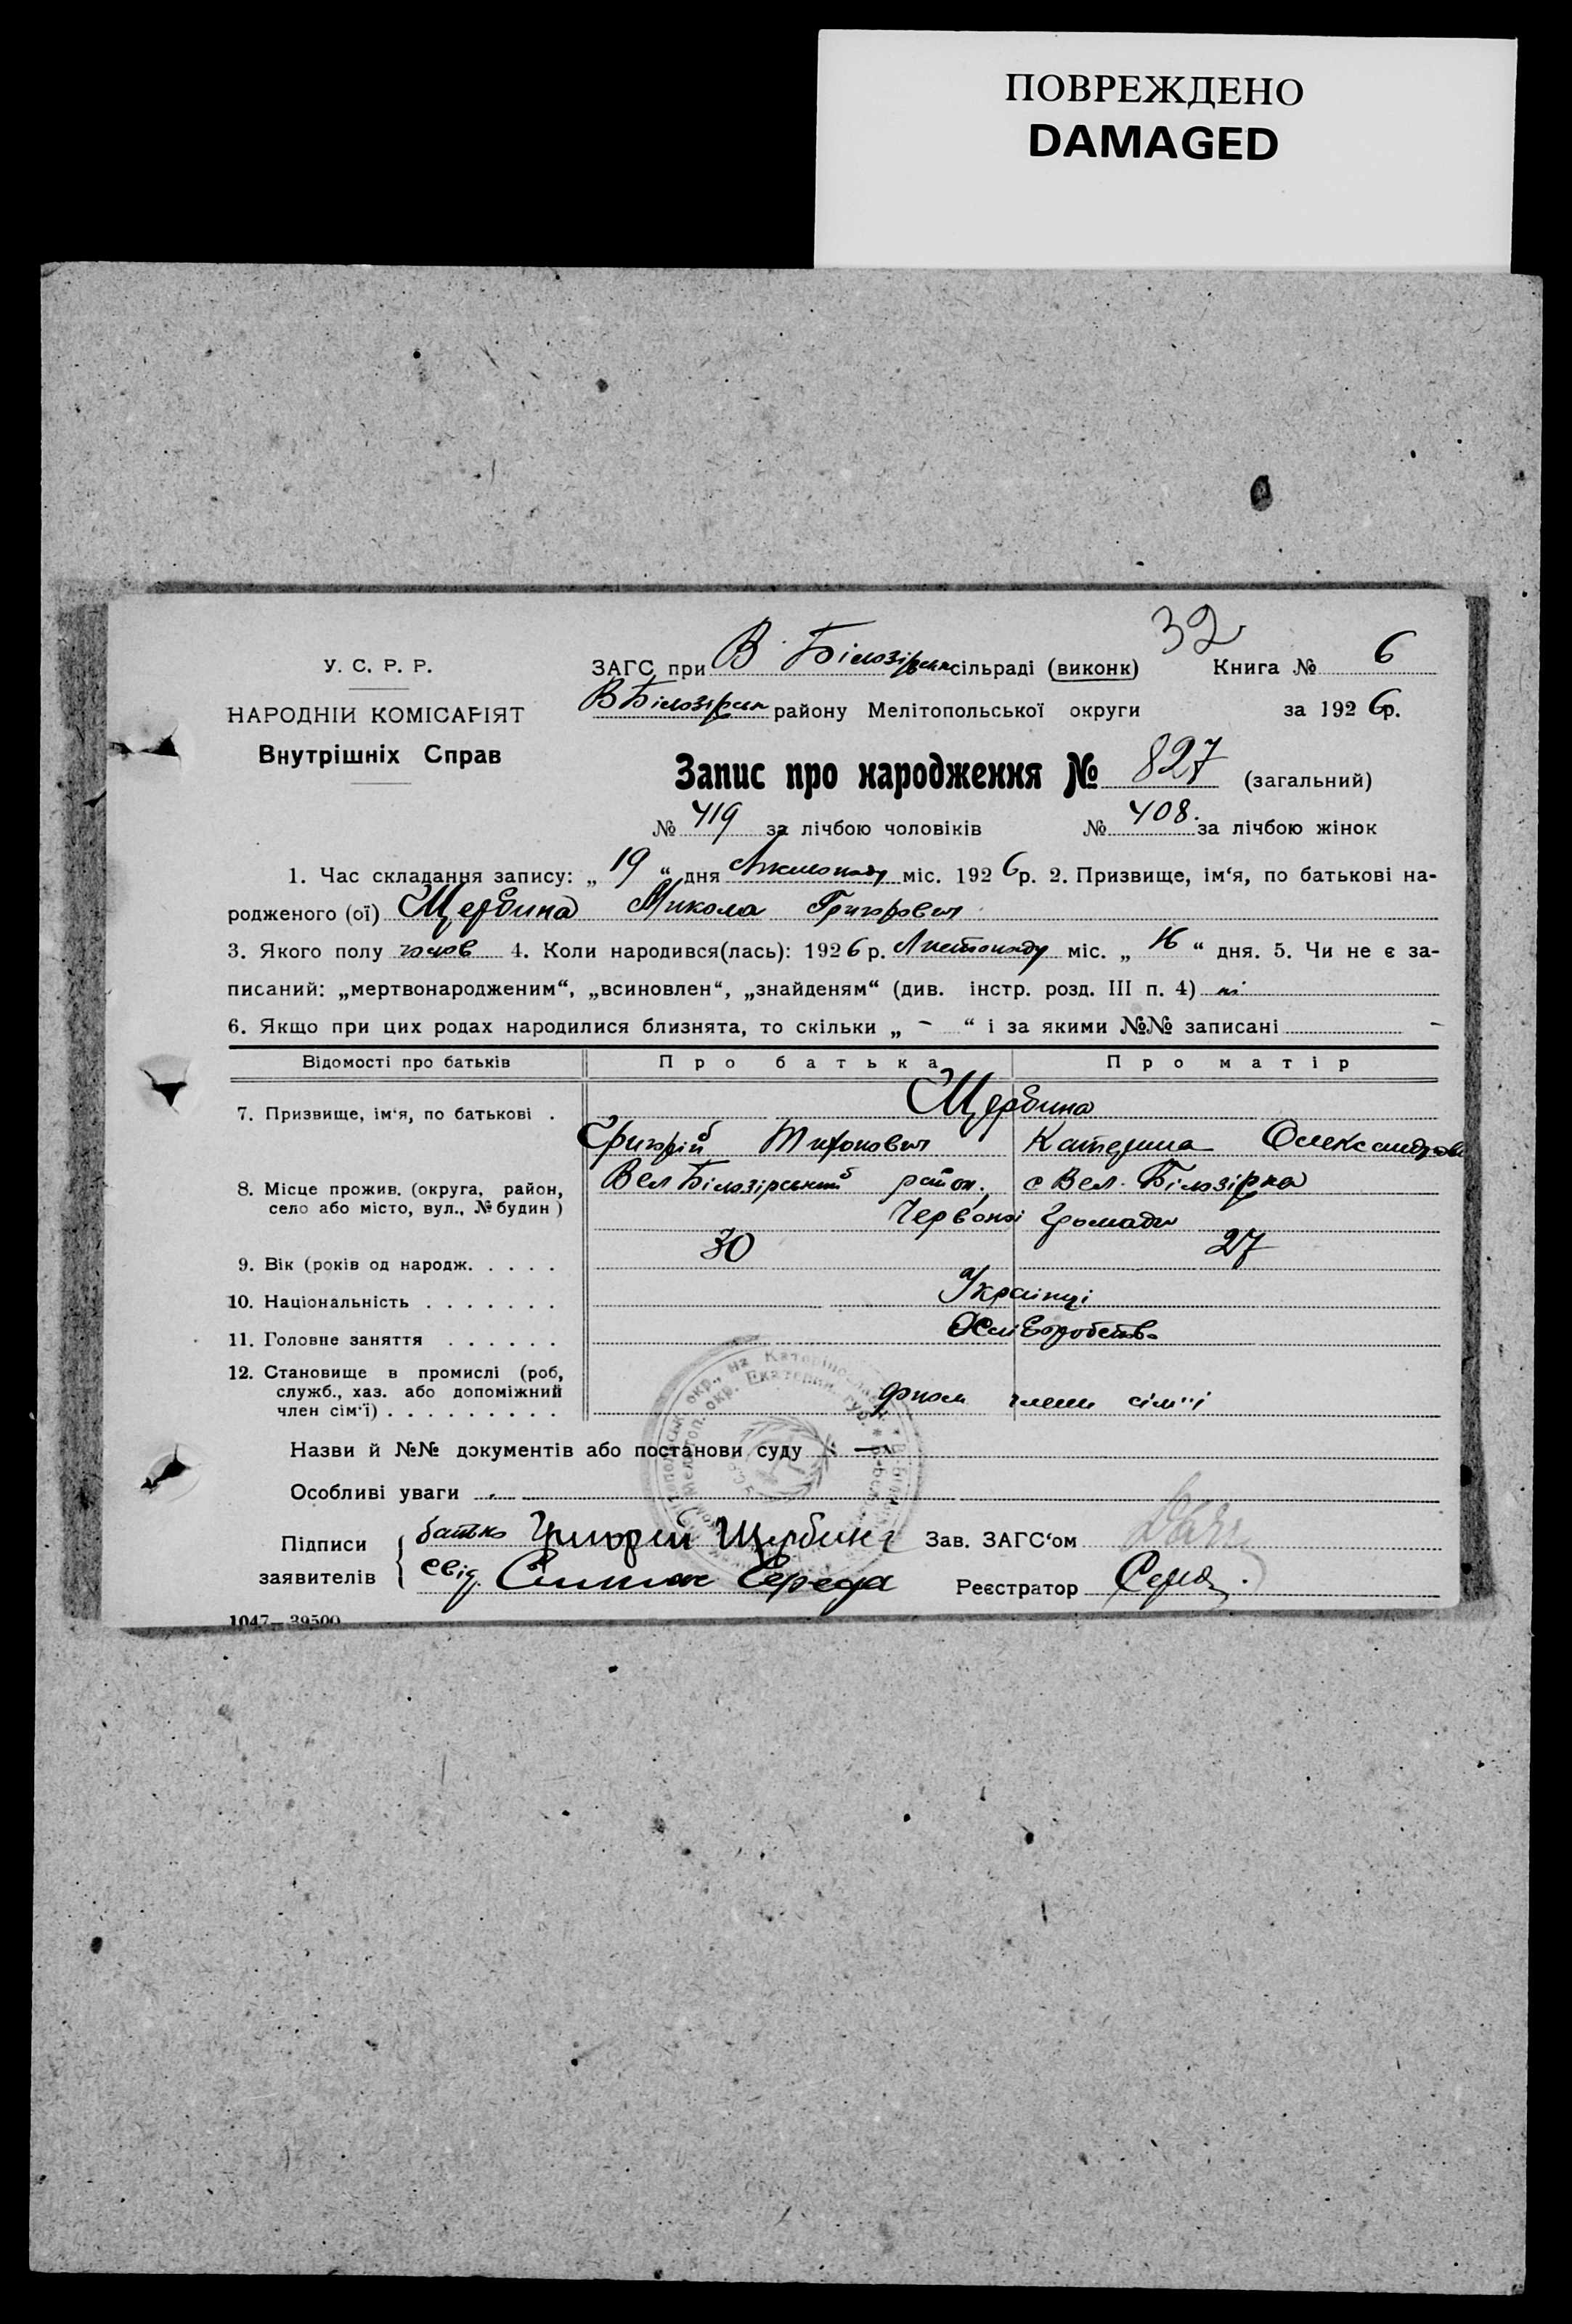 ПОВРЕЖДЕНО
DAMAGED
32
У. С. Р. Р.
ЗАГС при В. Білозірськ сільраді (виконк) Книга № 6
НАРОДНІЙ КОМІСАРІЯТ
В Білозірськ району Мелітопольської округи за 1926 р.
Внутрішніх Справ
Запис про народження № 827 (загальний)
№ 419 за лічбою чоловіків № 408. за лічбою жінок
1. Час складання запису: „ 19 “ дня Листопаду міс. 1926 р. 2. Призвище, ім‘я, по батькові на-
родженого (ої) Щербина Микола Григорович
3. Якого полу чолов 4. Коли народився(лась): 1926 р. Листопаду міс. „ 16 “ дня. 5. Чи не є за-
писаний: „мертвонародженим“, „всиновлен“, „знайденям“ (див. інстр. розд. III п. 4) ні
6. Якщо при цих родах народилися близнята, то скільки „ - “ і за якими №№ записані -
Відомості про батьків Про батька Про матір
7. Призвище, ім‘я, по батькові . Щербина
Григорій Тихонович Катерина Олександровн
8. Місце прожив. (округа, район, Вел Білозірський район, с Вел. Білозірка
село або місто, вул., № будин) Червоної Громади
9. Вік (років од народж. . . . . 30 27
10. Національність . . . . . . . Українці
11. Головне заняття . . . . . . Хліборобство
12. Становище в промислі (роб,
служб., хаз. або допоміжний
член сім‘ї) . . . . . . . . . допом члени сім'ї
Назви й №№ документів або постанови суду -
Особливі уваги -
Підписи батько Григорій Щербина Зав. ЗАГС‘ом
заявителів свід. Середа Реєстратор
1047—39500